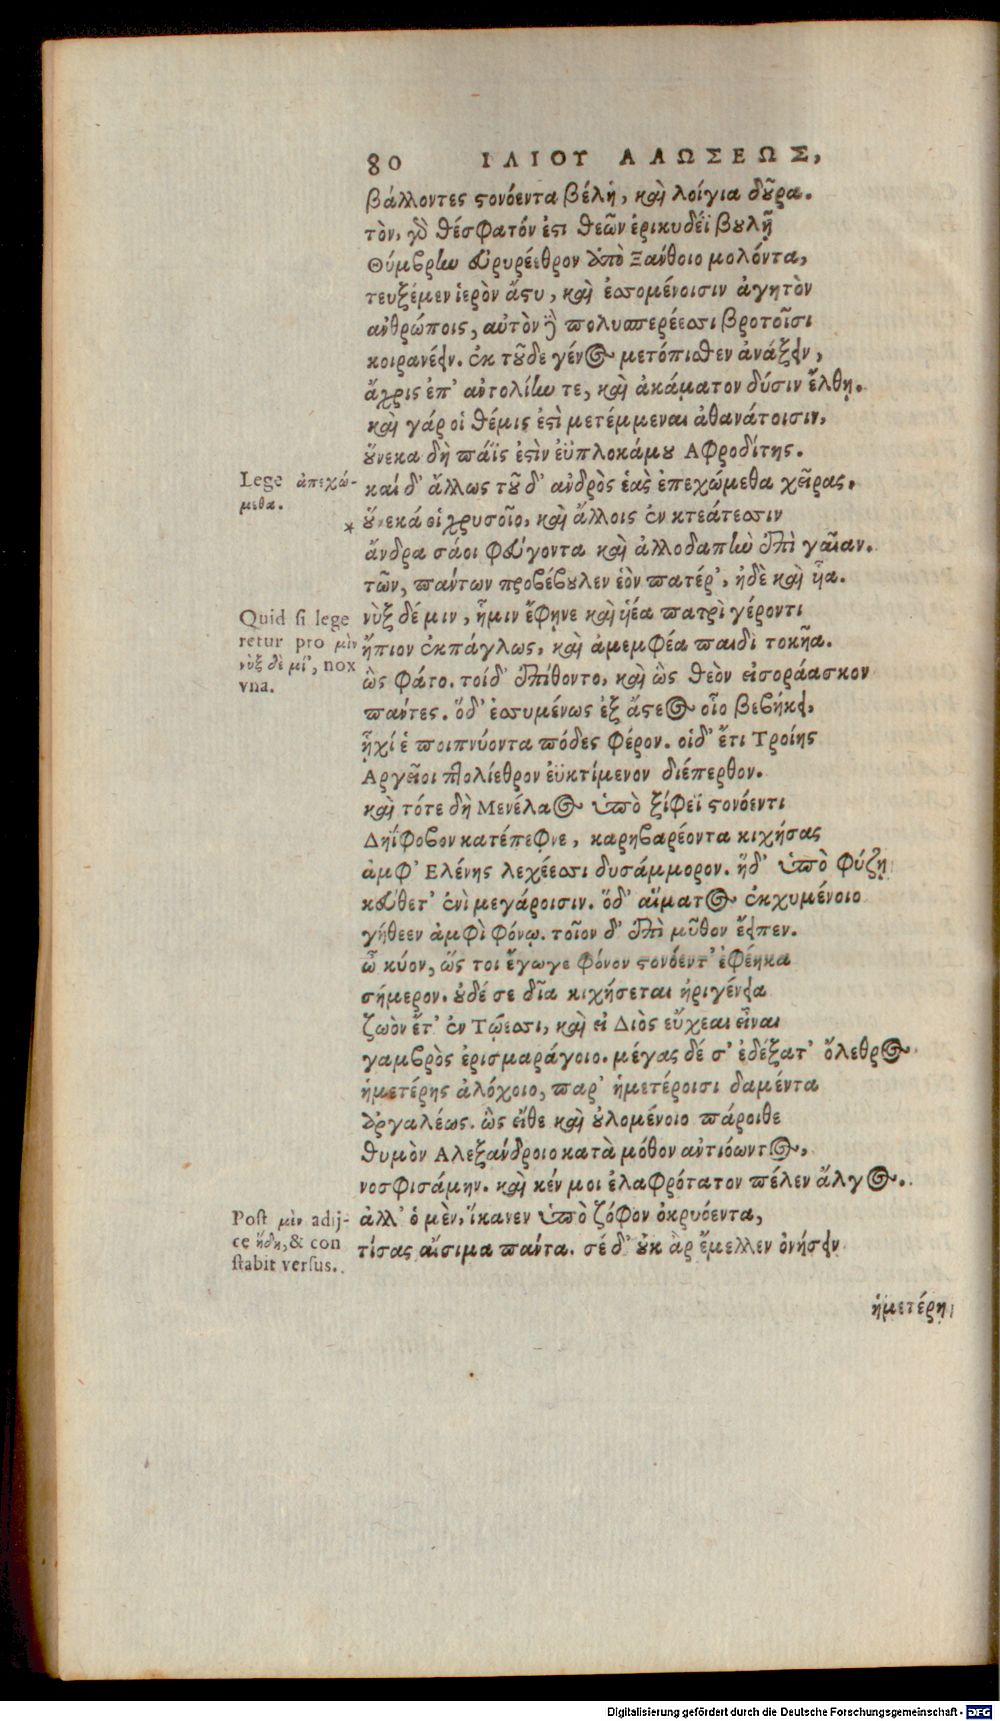 80 ΙΛΙΟΥ ΑΛΩΣΕΩΣ,
βάλλοντες στονόεντα βέλη, καὶ λοίγια δοῦρα.
τὸν, γδ θέσφατόν ἐστι θεῶν ἐρικυδέϊ βουλῇ
Θύμβριω εὐρυρέεθρον ἀπὸ Ξάνθοιο μολόντα,
τευξέμεν ἱερὸν ἄστυ, καὶ ἐσσομένοισιν ἀγητὸν
ἀνθρώποις, αὐτὸν ἢ πολυσπερέεσσι βροτοῖσι
κοιρανέειν. ἐκ τοῦδε γένος μετόπισθεν ἀνάξειν,
ἄχρις ἐπ' αὐτολίlω τε, καὶ ἀκάματον δύσιν ἔλθῃ.
καὶ γάρ οἱ θέμις ἐστὶ μετέμμεναι ἀθανάτοισιν,
οὕνεκα δὴ πάϊς ἐστὶν ἐϋπλοκάμου Αφροδίτης.
Lege ἀπεχώ-
μεθα.
καί δ' ἄλλως τοῦ δ' ἀνδρὸς ἑὰς ἐπεχώμεθα χεῖρας,
* οὕνεκά οἱ χρυσοῖο, καὶ ἄλλοις ἐν κτεάτεσσιν
ἄνδρα σάοι φεύγοντα καὶ ἀλλοδαπlὼ ἐπὶ γαῖαν.
τῶν, πάντων προβέβουλεν ἑὸν πατέρ', ἠδὲ καὶ ἧα.
Quid si lege
retur pro μὶν
νὺξ δὲ μί', nox
vna.
νὺξ δέ μιν, ἧμιν ἔφηνε καὶ ἡέα πατρὶ γέροντι
ἤπιον ἐκπάγλως, καὶ ἀμεμφέα παιδὶ τοκῆα.
ὣς φάτο. τοίδ' ἐπίθοντο, καὶ ὣς θεὸν εἰσοράασκον
πάντες. ὅδ' ἐσσυμένως ἐξ ἄστεος οἷο βεβήκει,
ᾗχί ἑ ποιπνύοντα πόδες φέρον. οἱδ' ἔτι Τροίης
Αργεῖοι πτολίεθρον ἐϋκτίμενον διέπερθον.
καὶ τότε δὴ Μενέλαος ὑπὸ ξίφεϊ στονόεντι
Δηΐφοβον κατέπεφνε, καρηβαρέοντα κιχήσας
ἀμφ' Ελένης λεχέεσσι δυσάμμορον. ἥδ' ὑπὸ φύζῃ
κεύθετ' ἐνὶ μεγάροισιν. ὅδ' αἵματος ἐκχυμένοιο
γήθεεν ἀμφὶ φόνῳ. τοῖον δ' ἐπὶ μῦθον ἔειπεν.
ὦ κύον, ὥς τοι ἔγωγε φόνον στονόεντ' ἐφέηκα
σήμερον. οὐδέ σε δῖα κιχήσεται ἠριγένεια
ζωὸν ἔτ' ἐν Τρώεσσι, καὶ εἰ Διὸς εὔχεαι εἶναι
γαμβρὸς ἐρισμαράγοιο. μέγας δέ σ' ἐδέξατ' ὄλεθρος
ἡμετέρης ἀλόχοιο, παρ' ἡμετέροισι δαμέντα
ἀργαλέως. ὣς εἴθε καὶ οὐλομένοιο πάροιθε
θυμὸν Αλεξάνδροιο κατὰ μόθον ἀντιόωντος,
νοσφισάμην. καὶ κέν μοι ἐλαφρότατον πέλεν ἄλγος.
Post μὶν adij-
ce ἤδη, & con
stabit versus.
ἀλλ' ὁ μὲν, ἵκανεν ὑπὸ ζόφον ὀκρυόεντα,
τίσας αἴσιμα πάντα. σέ δ' οὐκ ἂρ ἔμελλεν ὀνήσειν
ἡμετέρη
Digitalisierung gefördert durch die Deutsche Forschungsgemeinschaft - DFG